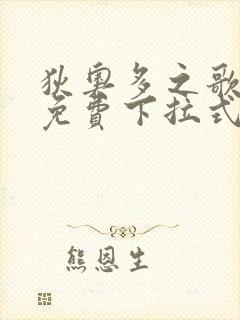 狄奧多之歌
免費下拉式
熊恩生